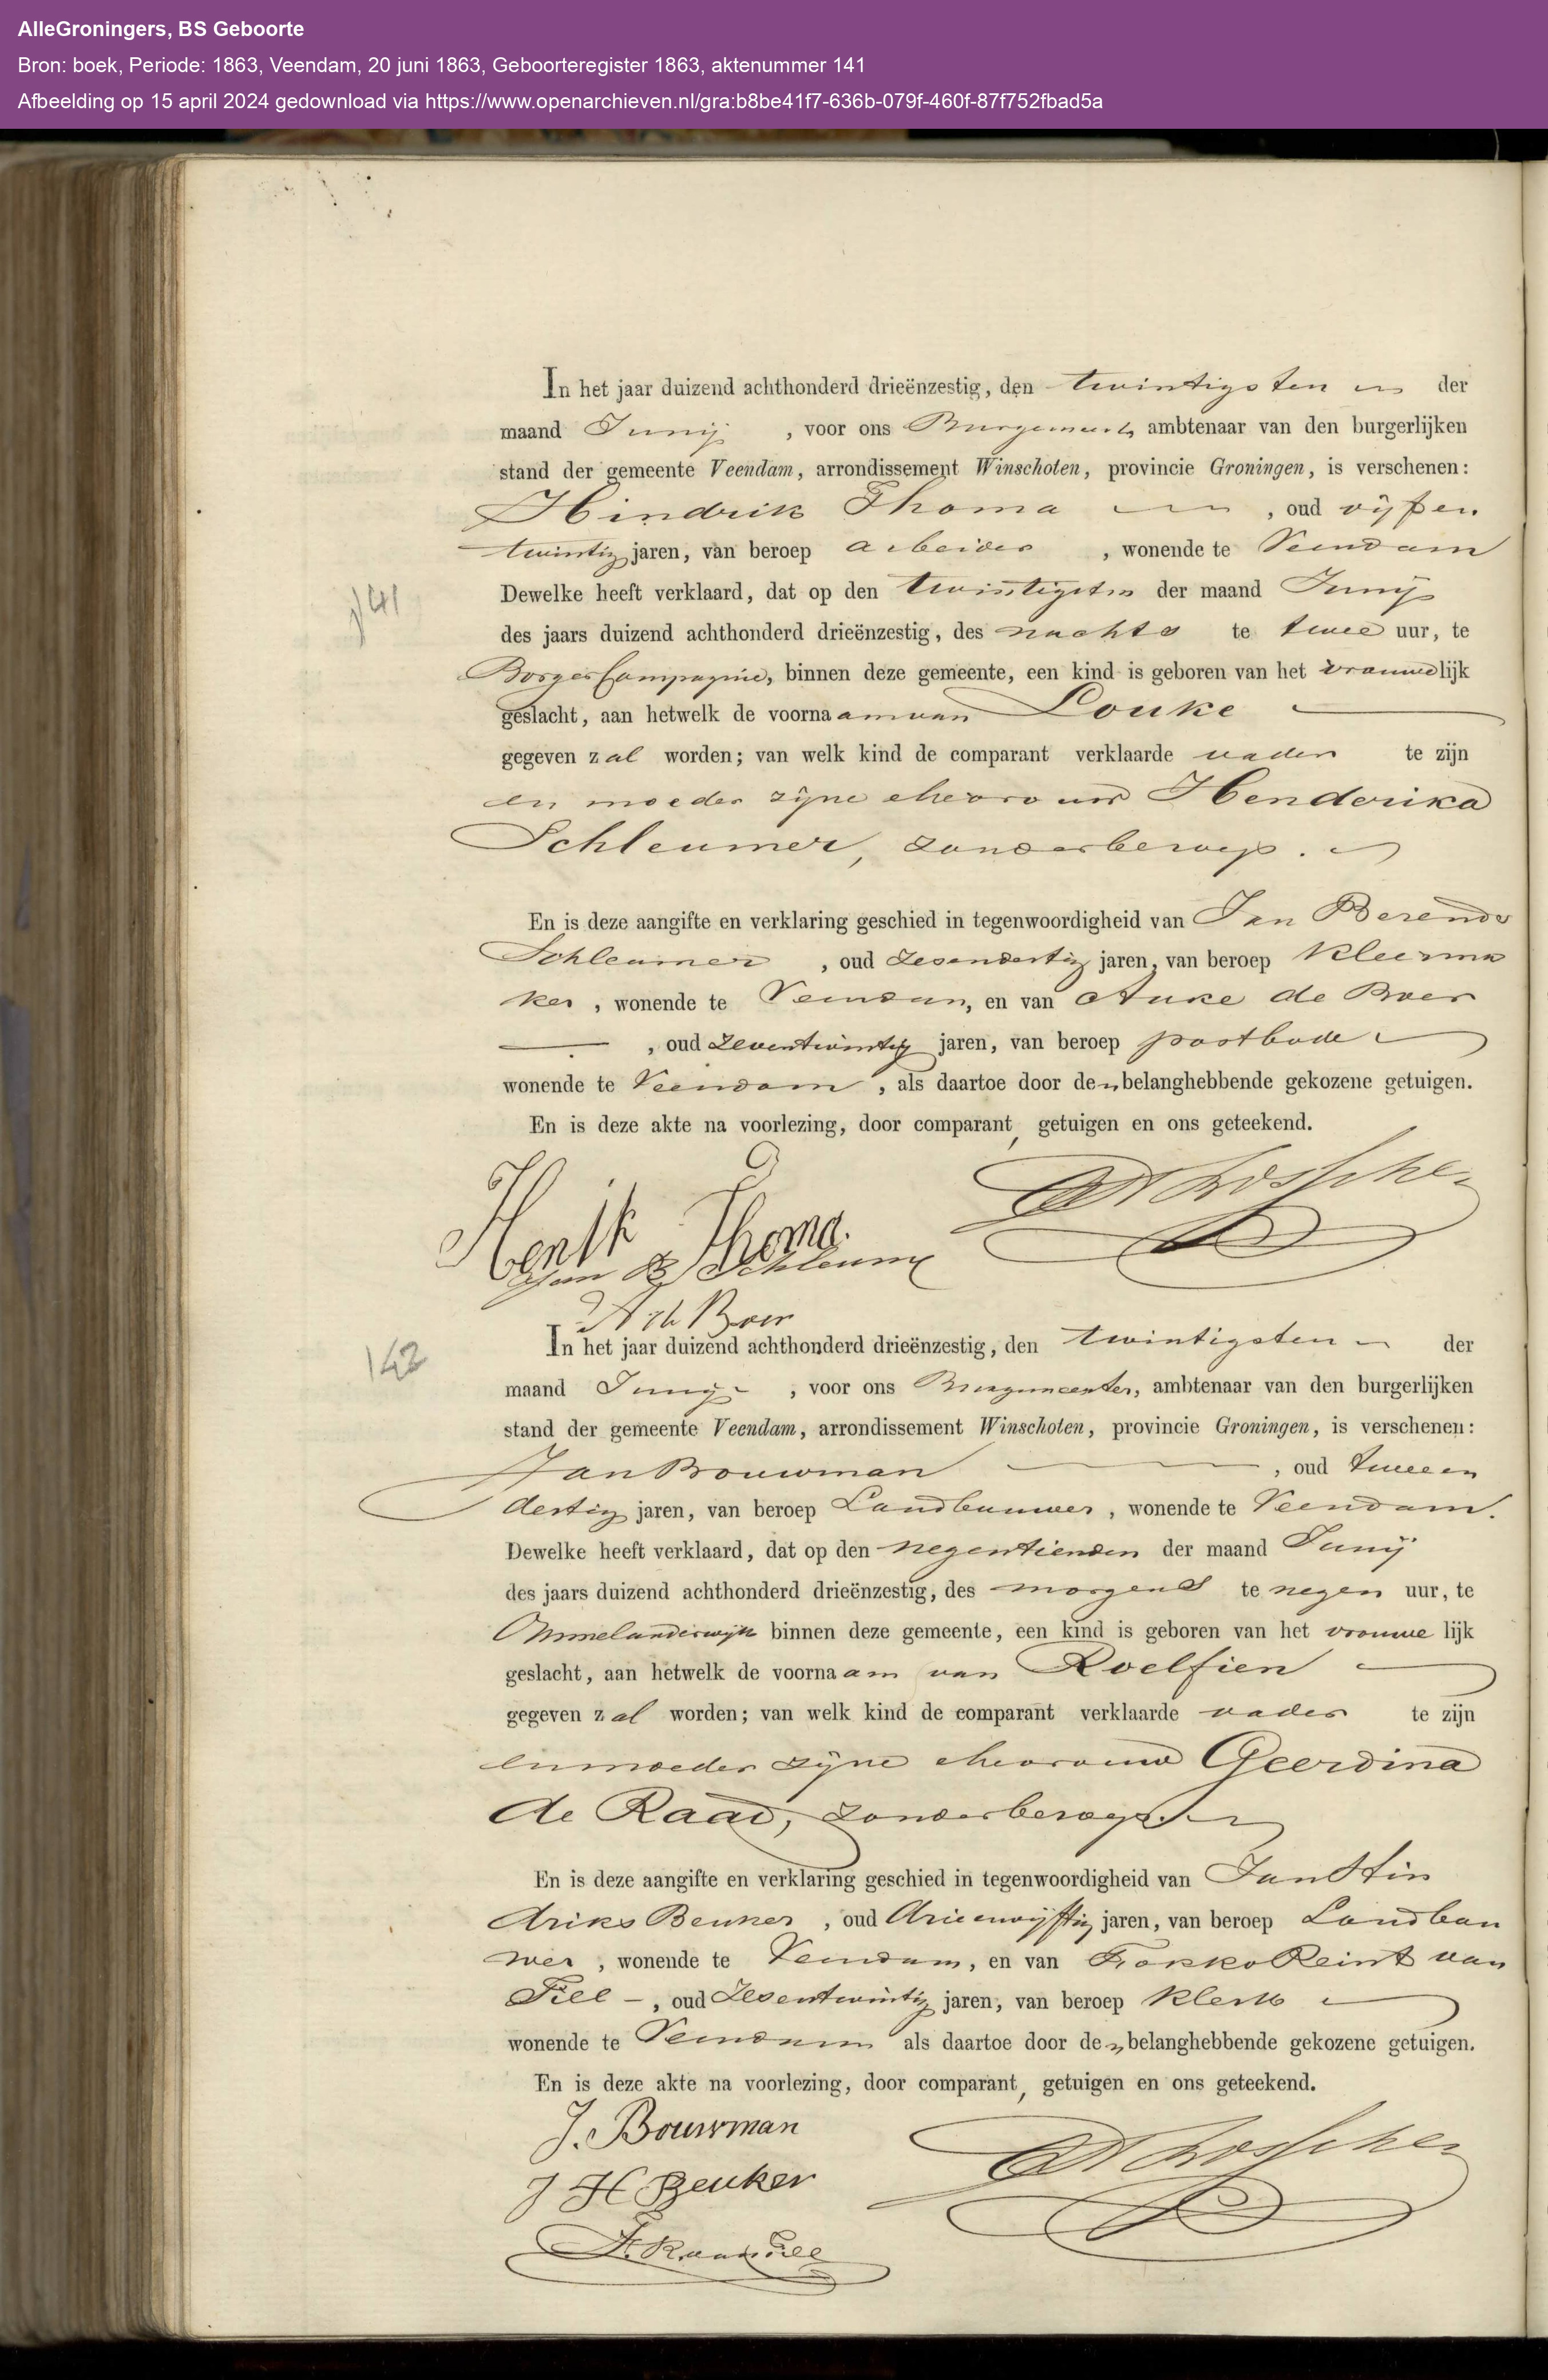 AlleGroningers, BS Geboorte
Bron: boek, Periode: 1863, Veendam, 20 juni 1863, Geboorteregister 1863, aktenummer 141
Afbeelding op 15 april 2024 gedownload via https://www.openarchieven.nl/gra:b8be41f7-636b-079f-460f-87f752fbad5a
In het jaar duizend achthonderd drieënzestig, den twintigsten der
maand Junij , voor ons ambtenaar van den burgerlijken
stand der gemeente Veendam, arrondissement Winschoten, provincie Groningen, is verschenen:
Hindrik Thoma , oud vijfen
twintig jaren, van beroep arbeider , wonende te Veendam
141
Dewelke heeft verklaard, dat op den twintigsten der maand Junij
des jaars duizend achthonderd drieënzestig, des nachts te twee uur, te
BorgerCompagnie, binnen deze gemeente, een kind is geboren van het vrouwelijk
geslacht, aan hetwelk de voornaam van Louke
gegeven zal worden; van welk kind de comparant verklaarde vader te zijn
en moeder zijne ehevrouw Henderika
Schleumer, zonder beroep.
En is deze aangifte en verklaring geschied in tegenwoordigheid van Jan Berends
Schleumer , oud zesendertig jaren, van beroep kleerma
ker , wonende te Veendam, en van Auke de Boer
, oud zeventwintig jaren, van beroep postbode
wonende te Veendam , als daartoe door den belanghebbende gekozene getuigen.
En is deze akte na voorlezing, door comparant, getuigen en ons geteekend.
Thoma.
Jan B Schleumer
A de Boer
142
In het jaar duizend achthonderd drieënzestig, den twintigsten der
maand Junij , voor ons Burgemeester, ambtenaar van den burgerlijken
stand der gemeente Veendam, arrondissement Winschoten, provincie Groningen, is verschenen:
Jan Bouwman , oud tweeen
dertig jaren, van beroep Landbouwer , wonende te Veendam.
Dewelke heeft verklaard, dat op den negentienden der maand Junij
des jaars duizend achthonderd drieënzestig, des morgens te negen uur, te
Ommelanderwijk binnen deze gemeente, een kind is geboren van het vrouwelijk
geslacht, aan hetwelk de voornaam van Roelfien
gegeven zal worden; van welk kind de comparant verklaarde vader te zijn
en moeder zijne ehevrouw Geerdina
de Raad, zonder beroep.
En is deze aangifte en verklaring geschied in tegenwoordigheid van Jan Hin
driks Beuker , oud drieenvijftig jaren, van beroep Landbou
wer , wonende te Veendam, en van Fokko Reint van
Tiel , oud zesentwintig jaren, van beroep klerk
wonende te Veendam als daartoe door den belanghebbende gekozene getuigen.
En is deze akte na voorlezing, door comparant, getuigen en ons geteekend.
J. Bouwman
J H Beuker
F. R. van Tiel